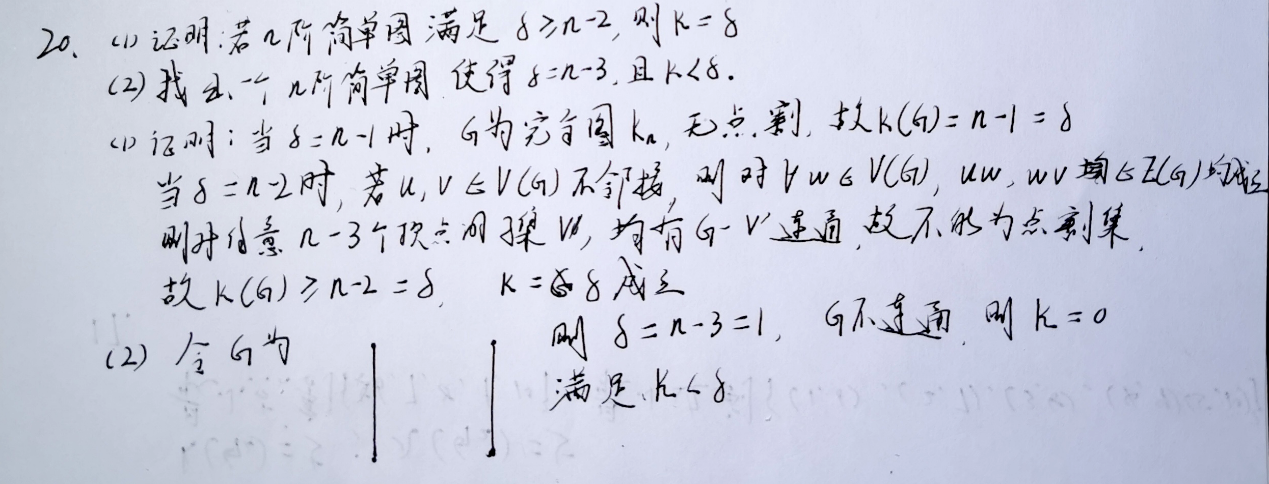 20. (1) 证明:若n阶简单图满足 δ≥n-2, 则 κ=δ
(2) 找出一个n阶简单图 使得 δ=n-3, 且 κ<δ.
(1) 证明:当δ=n-1时, G为完全图Kn, 无点割, 故κ(G)=n-1=δ
当δ=n-2时, 若u,v∈V(G)不邻接, 则对∀w∈V(G), uw, wv ∈E(G)均成立
则对任意n-3个顶点的集V', 均有G-V'连通, 故不能为点割集,
故κ(G)≥n-2=δ, κ=δ成立
(2) 令G为
则 δ=n-3=1, G不连通, 则κ=0
满足κ<δ